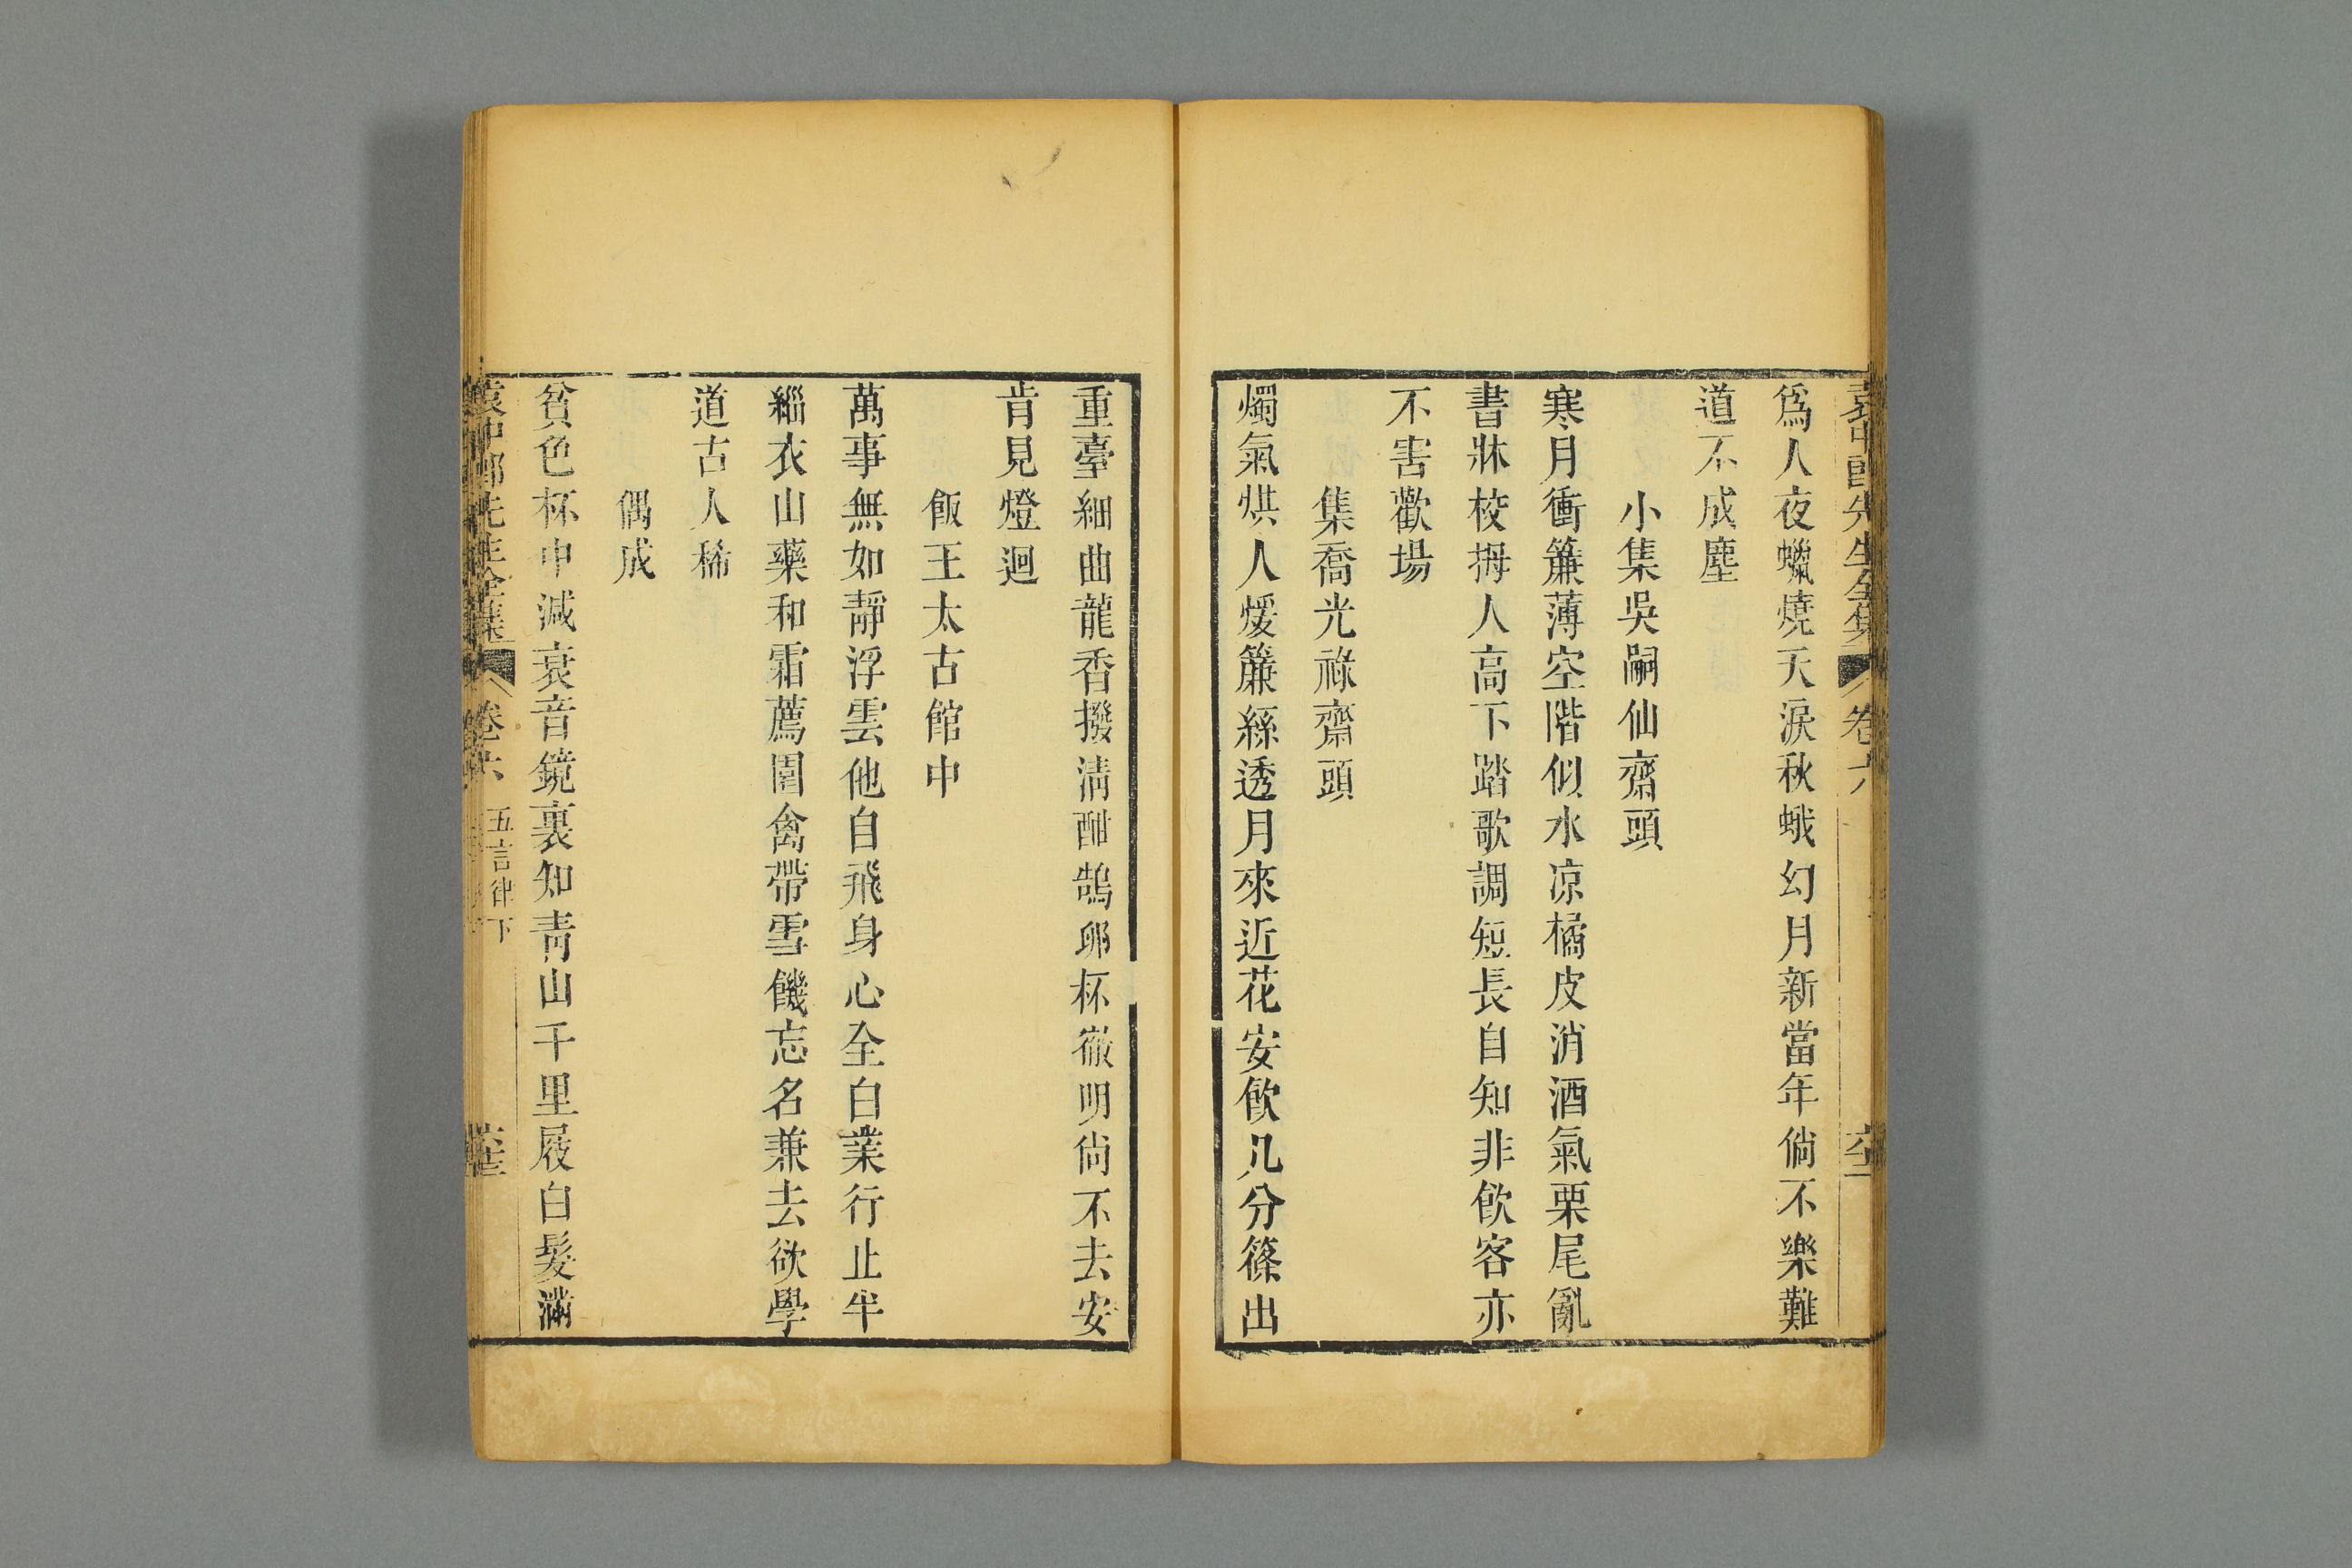 袁中郎先生全集 卷六
爲人夜蠟燒天淚秋蛾幻月新當年倘不樂難
道不成塵
小集吳嗣仙齋頭
寒月衝簾薄空階似水凉橘皮消酒氣栗尾亂
書牀校拇人高下踏歌調短長自知非飲客亦
不害歡場
集喬光祿齋頭
燭氣烘人煖簾絲透月來近花安飲几分篠出
重臺細曲龍香撥清酣鵠卵杯徹明倘不去安
肯見燈迴
飯王太古館中
萬事無如靜浮雲他自飛身心全白業行止半
緇衣山藥和霜薦園禽帶雪饑忘名兼去欲學
道古人稀
偶成
貧色杯中減衰音鏡裏知青山千里屐白髮滿
袁中郎先生全集 卷六 五言律下